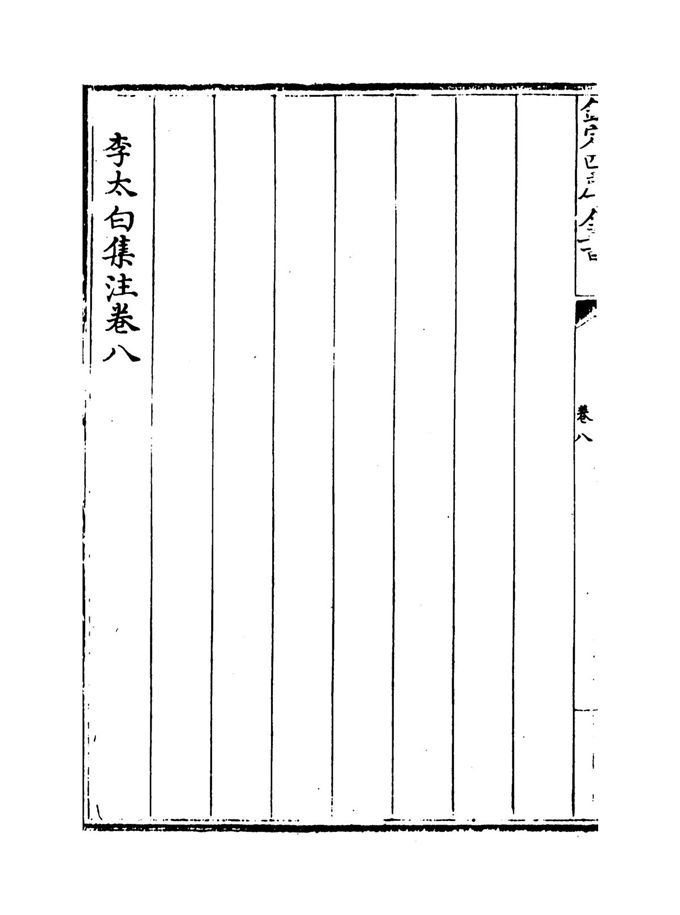 欽定四庫全書
卷八
李太白集注卷八